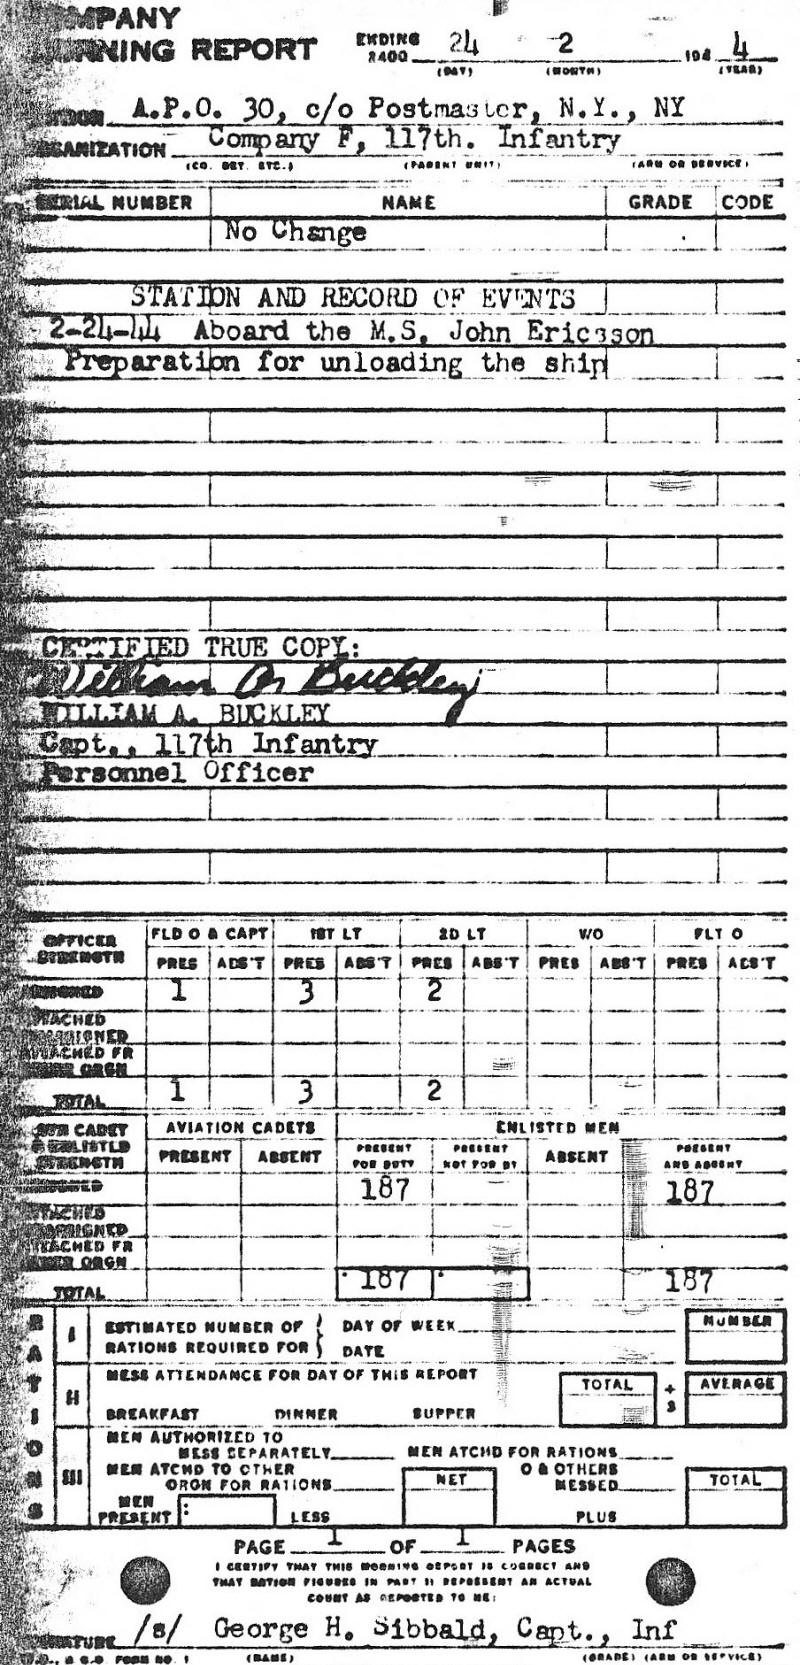 COMPANY
MORNING REPORT ENDING 2400 24 2 194 4
(DAY) (MONTH) (YEAR)
STATION A.P.O. 30, c/o Postmaster, N.Y., NY
ORGANIZATION Company F, 117th. Infantry
(CO. DET. ETC.) (PARENT UNIT) (ARM OR SERVICE)
SERIAL NUMBER NAME GRADE CODE
No Change
STATION AND RECORD OF EVENTS
2-24-44 Aboard the M.S. John Ericsson
Preparation for unloading the ship
CERTIFIED TRUE COPY:
William A. Buckley
WILLIAM A. BUCKLEY
Capt., 117th Infantry
Personnel Officer
OFFICER STRENGTH FLD O & CAPT 1ST LT 2D LT W/O FLT O
PRES ABS'T PRES ABS'T PRES ABS'T PRES ABS'T PRES ABS'T
ASSIGNED 1 3 2
ATTACHED
UNASSIGNED
ATTACHED FR
OTHER ORGN
TOTAL 1 3 2
AVN CADET & ENLISTED STRENGTH AVIATION CADETS ENLISTED MEN
PRESENT ABSENT PRESENT FOR DUTY PRESENT NOT FOR DY ABSENT PRESENT AND ABSENT
ASSIGNED 187 187
ATTACHED
UNASSIGNED
ATTACHED FR
OTHER ORGN
TOTAL 187 187
RATIONS
I ESTIMATED NUMBER OF RATIONS REQUIRED FOR DAY OF WEEK DATE NUMBER
II MESS ATTENDANCE FOR DAY OF THIS REPORT TOTAL ÷ 3 AVERAGE
BREAKFAST DINNER SUPPER
III MEN AUTHORIZED TO MESS SEPARATELY MEN ATCHD FOR RATIONS
MEN ATCHD TO OTHER ORGN FOR RATIONS NET O & OTHERS MESSED TOTAL
MEN PRESENT : LESS PLUS
PAGE 1 OF 1 PAGES
I CERTIFY THAT THIS MORNING REPORT IS CORRECT AND
THAT RATION FIGURES IN PART II REPRESENT AN ACTUAL
COUNT AS REPORTED TO ME:
SIGNATURE /s/ George H. Sibbald, Capt., Inf
W.D., A.G.O. FORM NO. 1 (NAME) (GRADE) (ARM OR SERVICE)